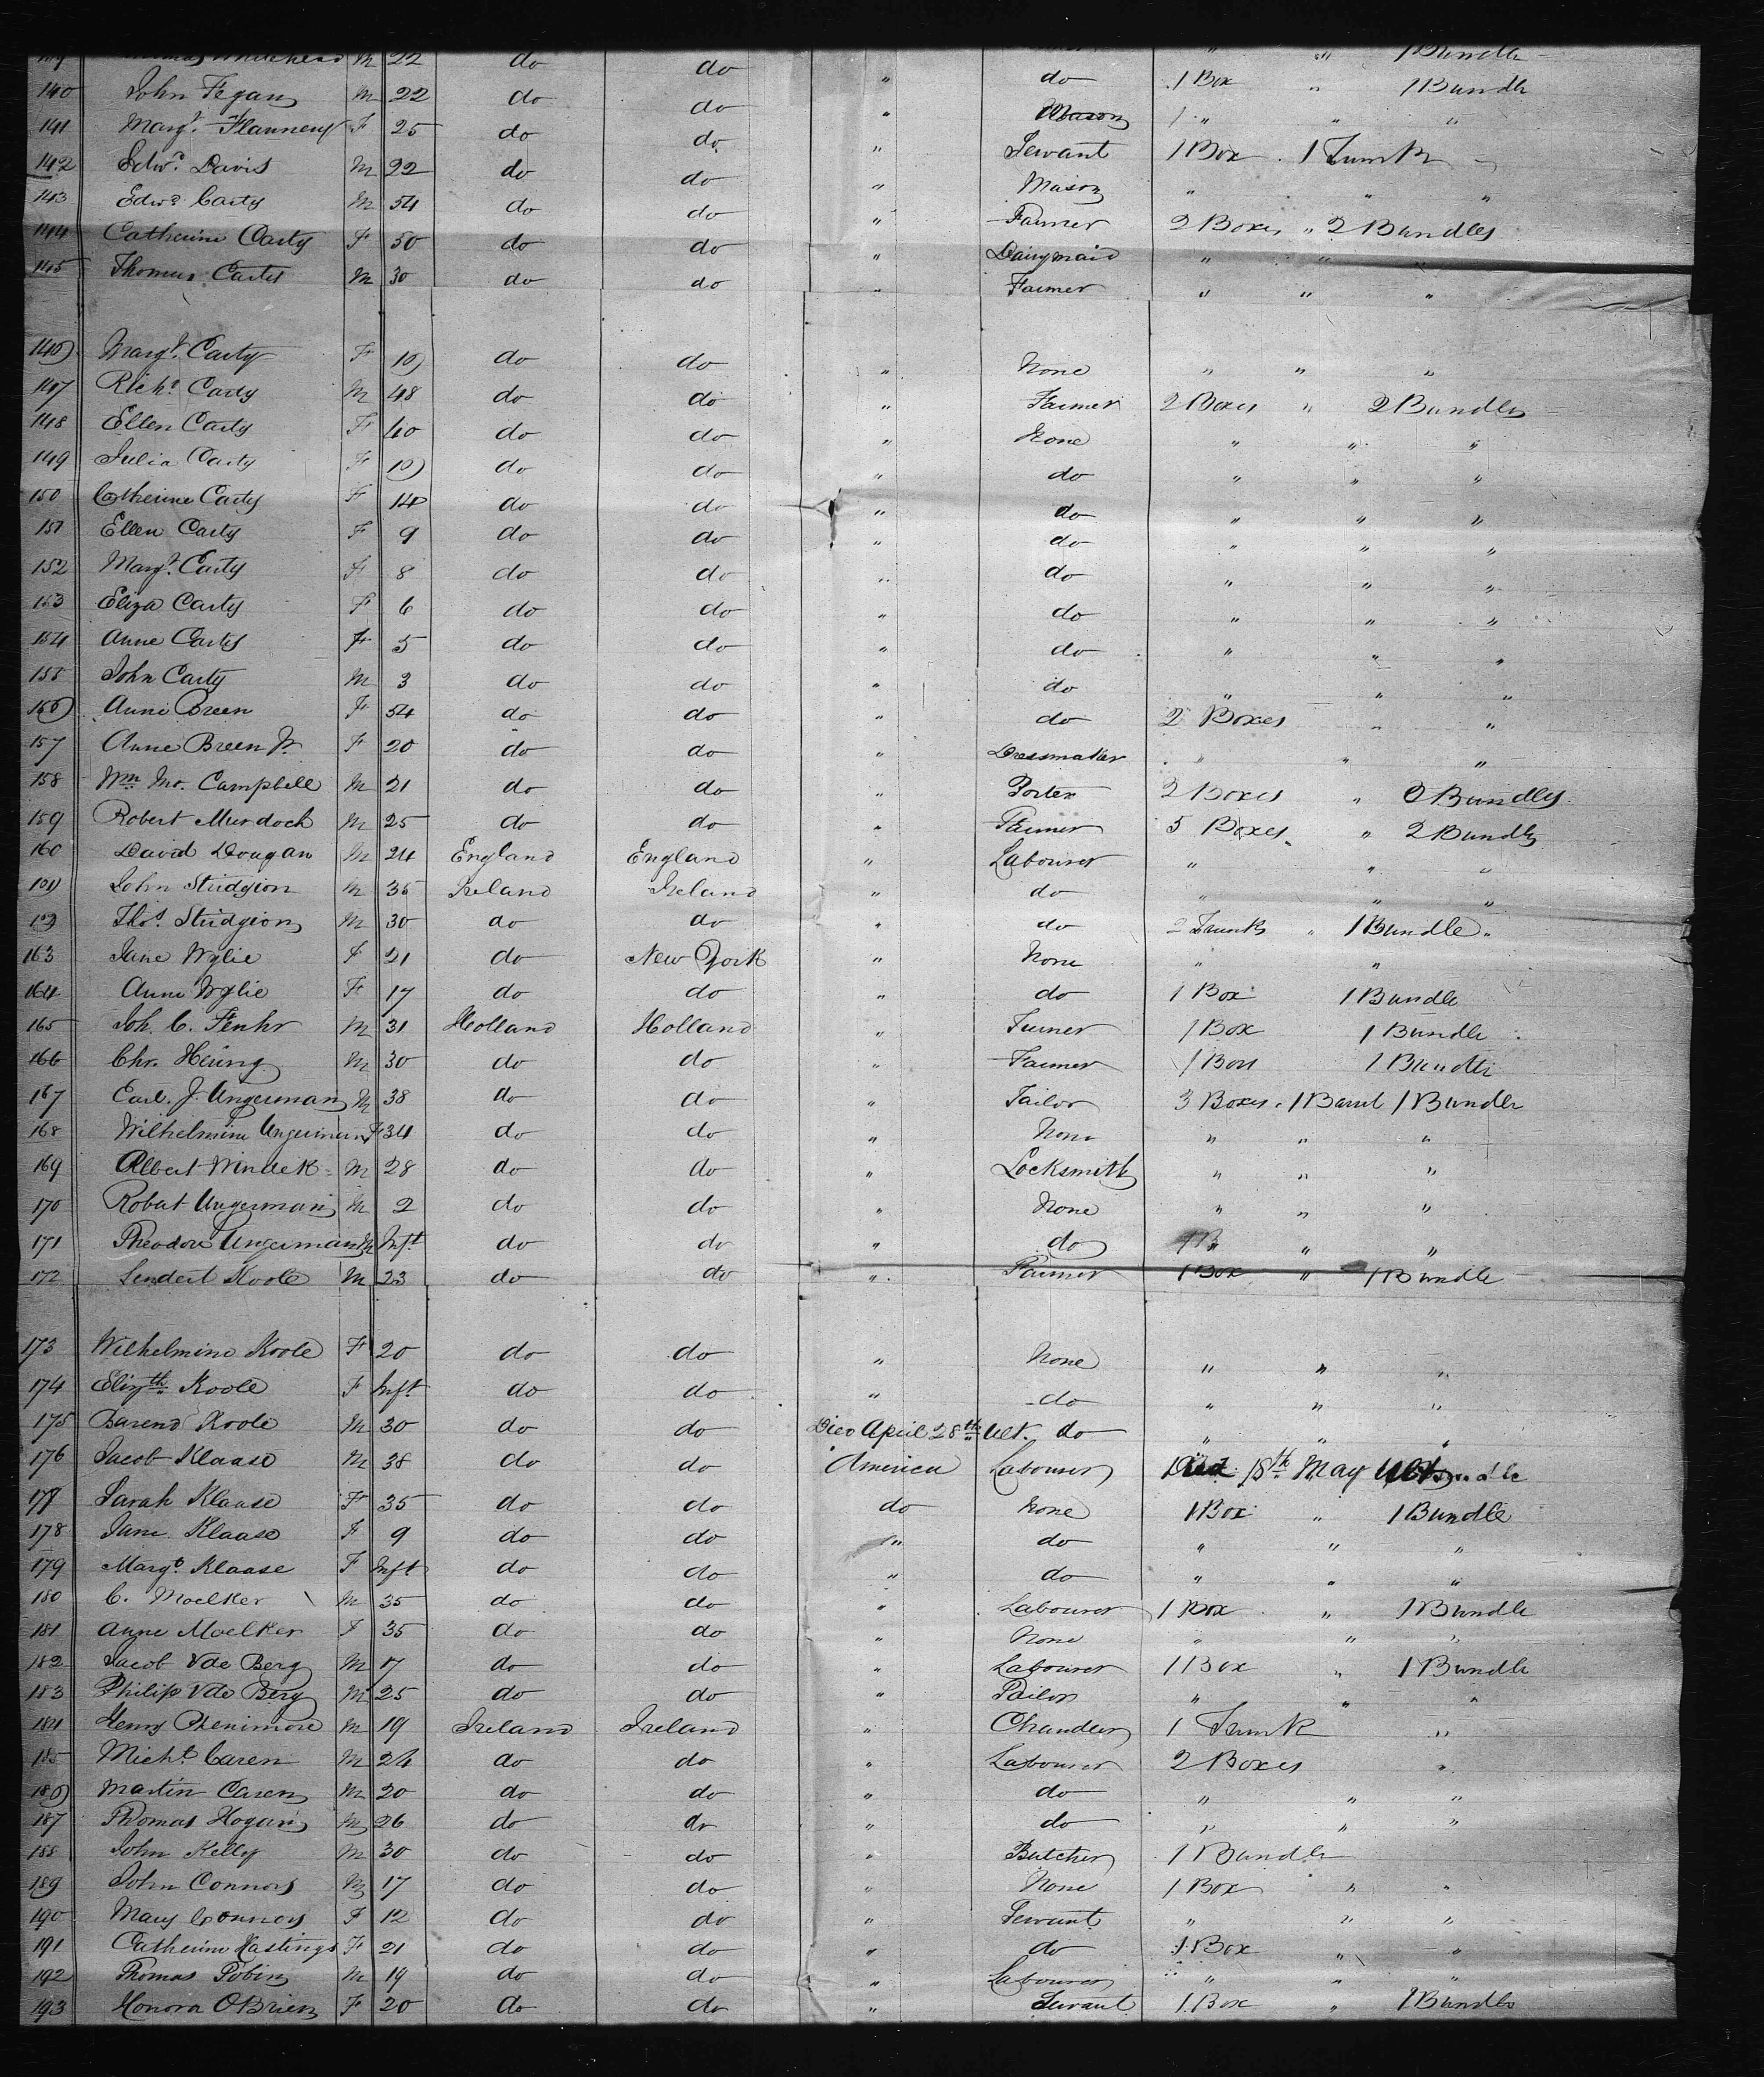 22 do do 1 Bundle
140 John Fegan M 22 do do " do 1 Box " 1 Bundle
141 Margt. Flannery F 25 do do " Mason 1 " " "
142 Edwd. Davis M 22 do do " Servant 1 Box . 1 Trunk
143 Edwd. Carty M 54 do do " Mason " " "
144 Catherine Carty F 50 do do " Farmer 2 Boxes " 2 Bundles
145 Thomas Carty M 30 do do " Dairymaid " " "
" Farmer " " "
146 Margt. Carty F 10 do do " None " " "
147 Richd. Carty M 48 do do " Farmer 2 Boxes " 2 Bundles
148 Ellen Carty F 40 do do " None " " "
149 Julia Carty F 10 do do " do " " "
150 Catherine Carty F 14 do do " do " " "
151 Ellen Carty F 9 do do " do " " "
152 Margt. Carty F 8 do do " do " " "
153 Eliza Carty F 6 do do " do " " "
154 Anne Carty F 5 do do " do " " "
155 John Carty M 3 do do " do " " "
156 Anne Breen F 54 do do " do 2 Boxes " "
157 Anne Breen Jr. F 20 do do " Dressmaker " " "
158 Wm. Mc. Campbell M 21 do do " Porter 2 Boxes " 2 Bundles
159 Robert Murdoch M 25 do do " Farmer 5 Boxes " 2 Bundles
160 David Dougan M 24 England England " Labourer " " "
161 John Stridgion M 35 Ireland Ireland " do " " "
162 Thos. Stridgion M 30 do do " do 2 Trunks " 1 Bundle "
163 Jane Wylie F 21 do New York " None " "
164 Anne Wylie F 17 do do " do 1 Box 1 Bundle
165 Joh. C. Fenhr M 31 Holland Holland " Turner 1 Box 1 Bundle
166 Chr. Hering M 30 do do " Farmer 1 Box 1 Bundle
167 Carl. J. Ungerman M 38 do do " Tailor 3 Boxes . 1 Barrel 1 Bundle
168 Wilhelmine Ungerman F 34 do do " None " " "
169 Albert Windek M 28 do do " Locksmith " " "
170 Robert Ungerman M 2 do do " None " " "
171 Theodore Ungerman M Inft do do " do " "
172 Lendert Koole M 23 do do " Farmer 1 Box " 1 Bundle
173 Wilhelmine Koole F 20 do do " None " " "
174 Elizth. Koole F Inft do do " do " " "
175 Barend Koole M 30 do do Died April 28th Ult. do " " "
176 Jacob Klaase M 38 do do America Labourer Died 18th May Ult
177 Sarah Klaase F 35 do do do None 1 Box " 1 Bundle
178 Jane Klaase F 9 do do " do " " "
179 Margt. Klaase F Inft do do " do " " "
180 C. Moelker M 35 do do " Labourer 1 Box " 1 Bundle
181 Anne Moelker F 35 do do " None " " "
182 Jacob Vde Berg M 17 do do " Labourer 1 Box " 1 Bundle
183 Philip Vde Berg M 25 do do " Tailor " " "
184 Henry Phenimore M 19 Ireland Ireland " Chandler 1 Trunk "
185 Michl. Caren M 24 do do " Labourer 2 Boxes "
186 Martin Caren M 20 do do " do " " "
187 Thomas Hogan M 26 do do " do " " "
188 John Kelly M 30 do do " Butcher 1 Bundle
189 John Connors M 17 do do " None 1 Box " "
190 Mary Connors F 12 do do " Servant " " "
191 Catherine Hastings F 21 do do " do 1 Box " "
192 Thomas Tobin M 19 do do " Labourer " " "
193 Honora OBrien F 20 do do " Servant 1 Box " 1 Bundle